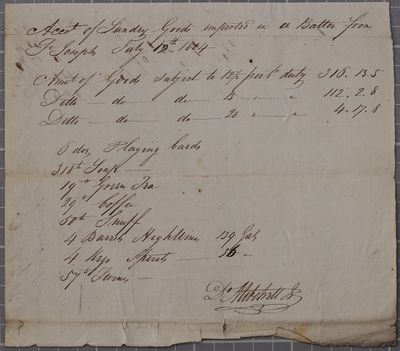 Acct of Sundry Goods imported in a Batteo from
St Joseph July 12th 1804
Amt of Goods Subject to 12½ per Ct duty 316.13.5
Ditto — do — do — 15 " " 112.2.8
Ditto — do — do — 20 " " 4.17.8
6 doz Playing Cards
318 lb Soap —
19 " Green Tea
29 " Coffee
50 lb Snuff
4 Barrels Highwines 139 Gals
4 Kegs Spirits — 36 —
57 lb Twine —
Dd Mitchell Jr